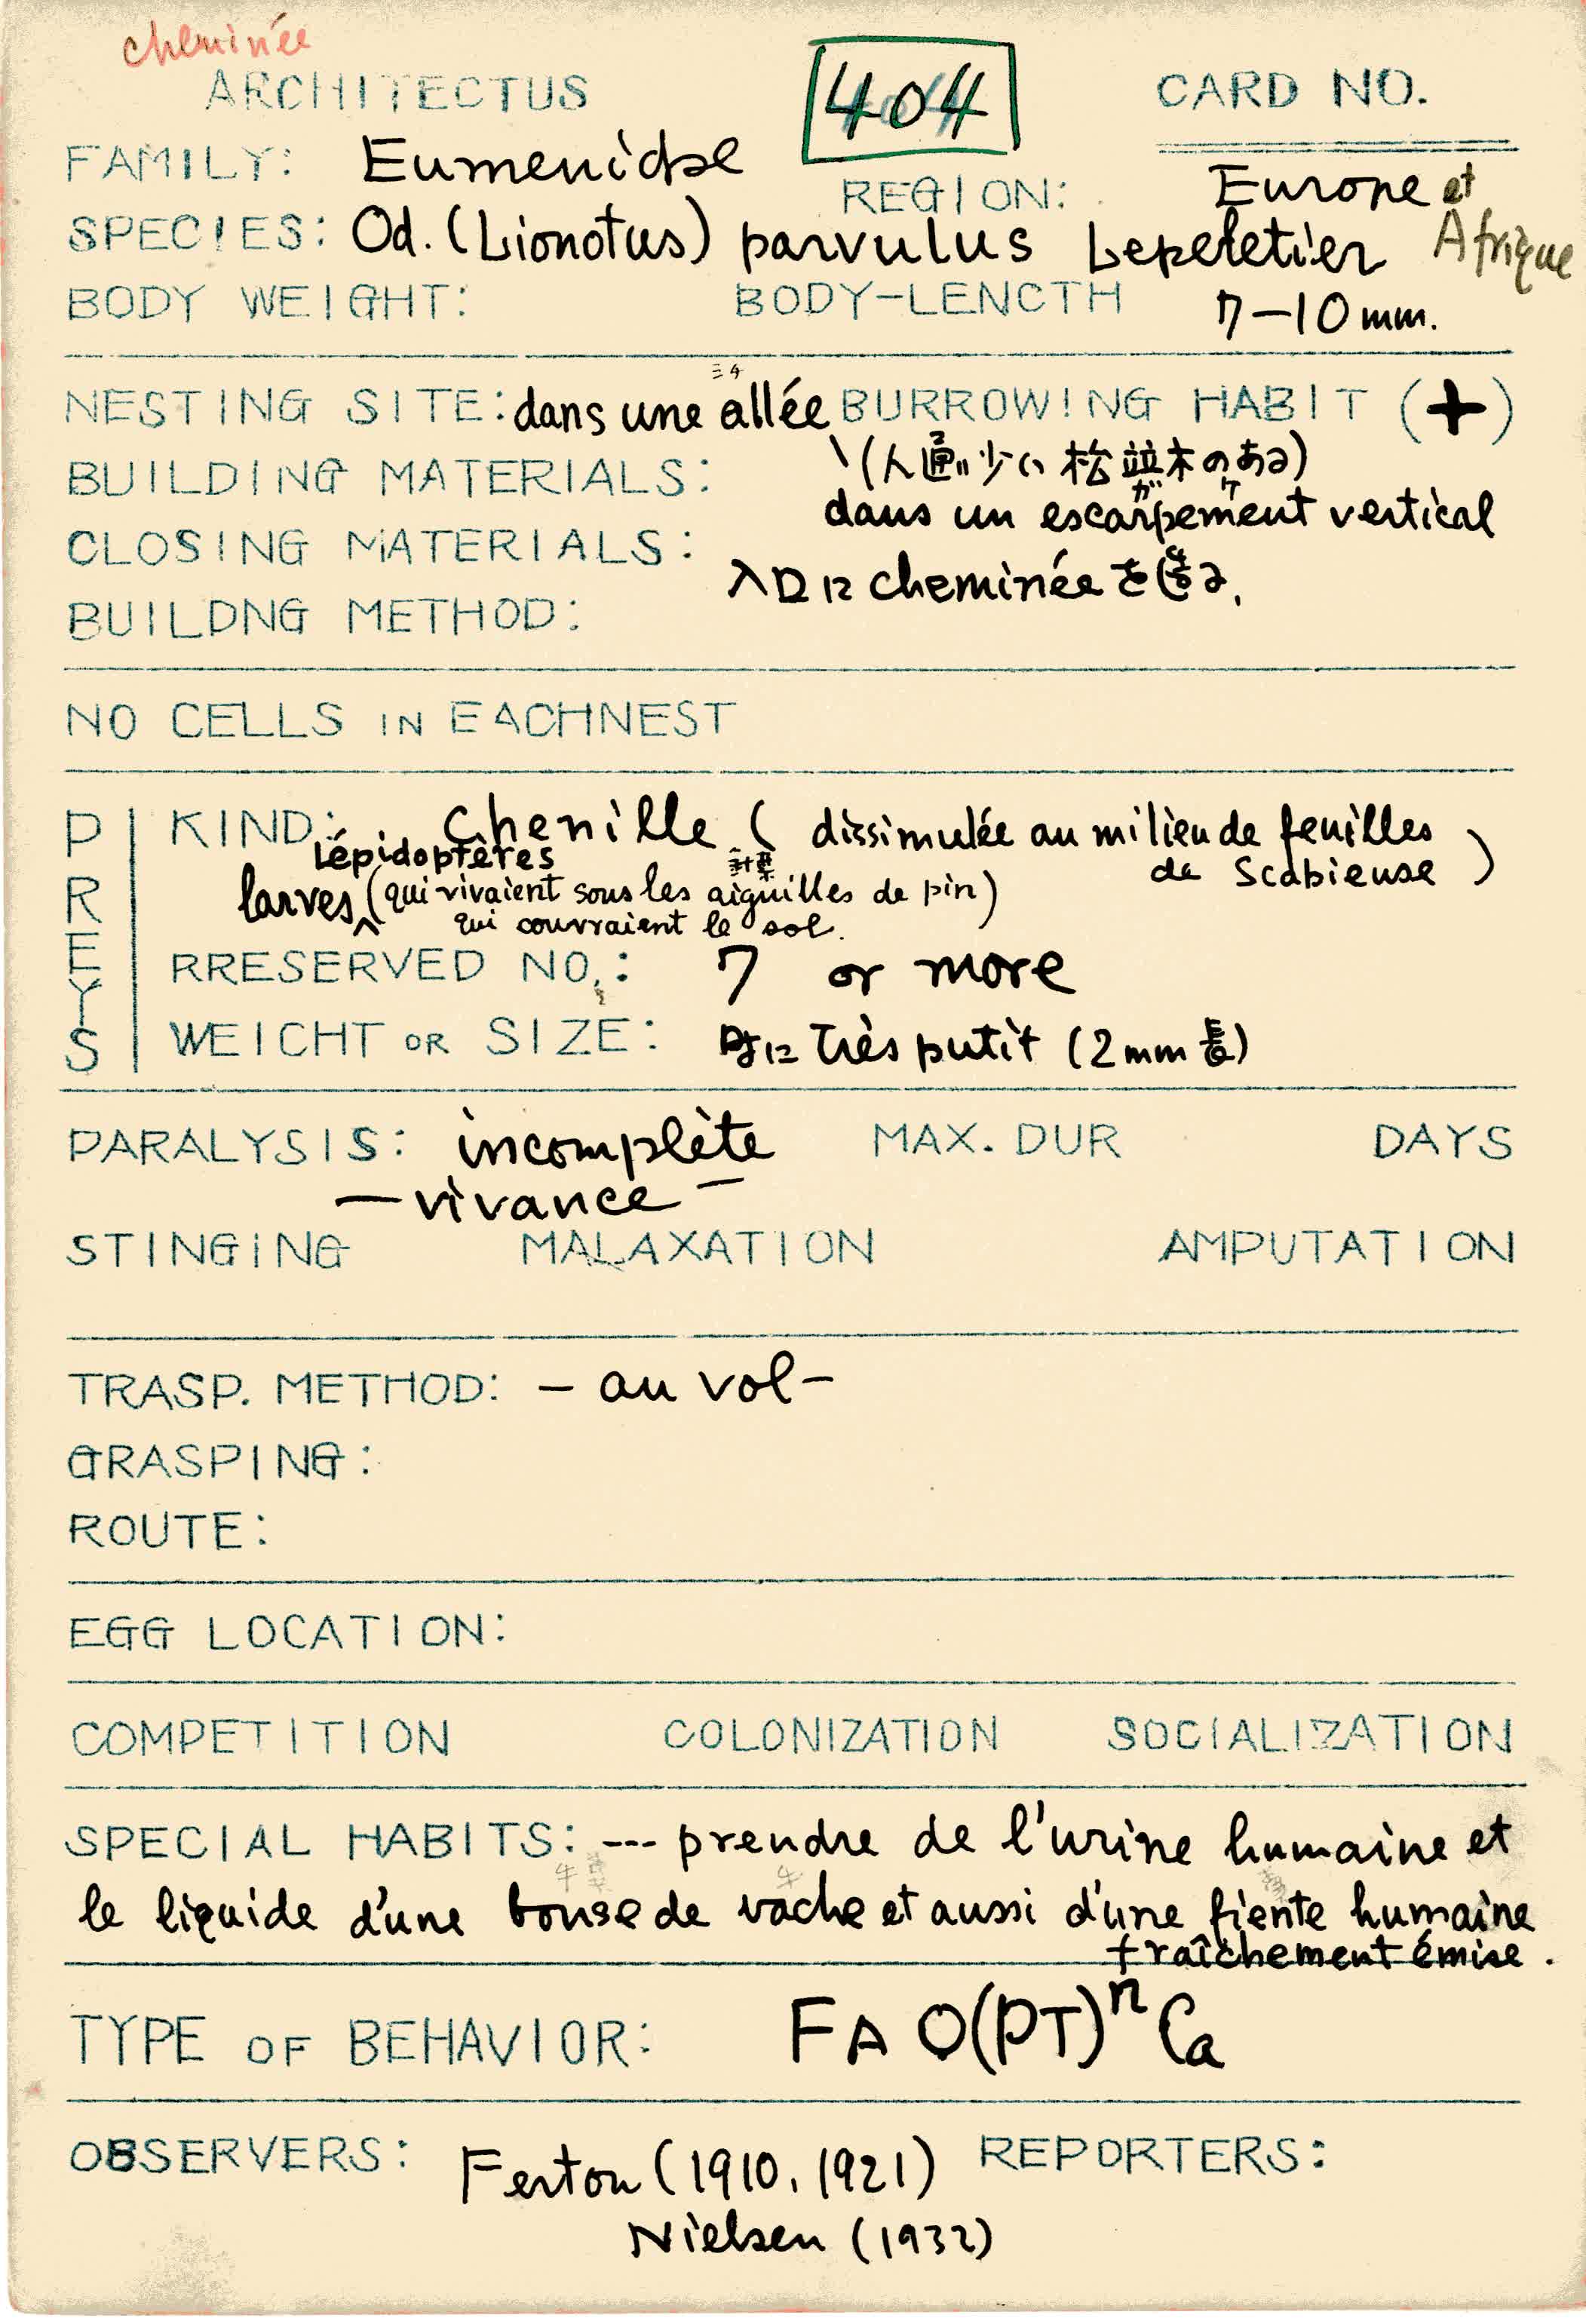 cheminée
ARCHITECTUS 404 CARD NO.
FAMILY: Eumenidae REGION: Europe et Afrique
SPECIES: Od. (Lionotus) parvulus Lepeletier
BODY WEIGHT: BODY-LENCTH 7-10mm.
NESTING SITE: dans une allée BURROWING HABIT (+)
(人通り少い松並木のある)
BUILDING MATERIALS:
dans un escarpement vertical
CLOSING MATERIALS:
入口に cheminée を作る.
BUILDNG METHOD:
NO CELLS IN EACHNEST
PREYS
KIND: Chenille (dissimulée au milieu de feuilles de Scabieuse)
Lépidoptères
larves (qui vivaient sous les aiguilles de pin)
qui couvraient le sol.
RRESERVED NO.: 7 or more
WEICHT OR SIZE: 時に très putit (2mm長)
PARALYSIS: incomplète MAX. DUR DAYS
— vivance —
STINGING MALAXATION AMPUTATION
TRASP. METHOD: – au vol –
GRASPING:
ROUTE:
EGG LOCATION:
COMPETITION COLONIZATION SOCIALIZATION
SPECIAL HABITS: --- prendre de l'urine humaine et
le liquide d'une bouse de vache et aussi d'une fiente humaine
fraîchement émise.
TYPE OF BEHAVIOR: FAO(PT)ⁿCa
OBSERVERS: Ferton (1910, 1921) REPORTERS:
Nielsen (1932)